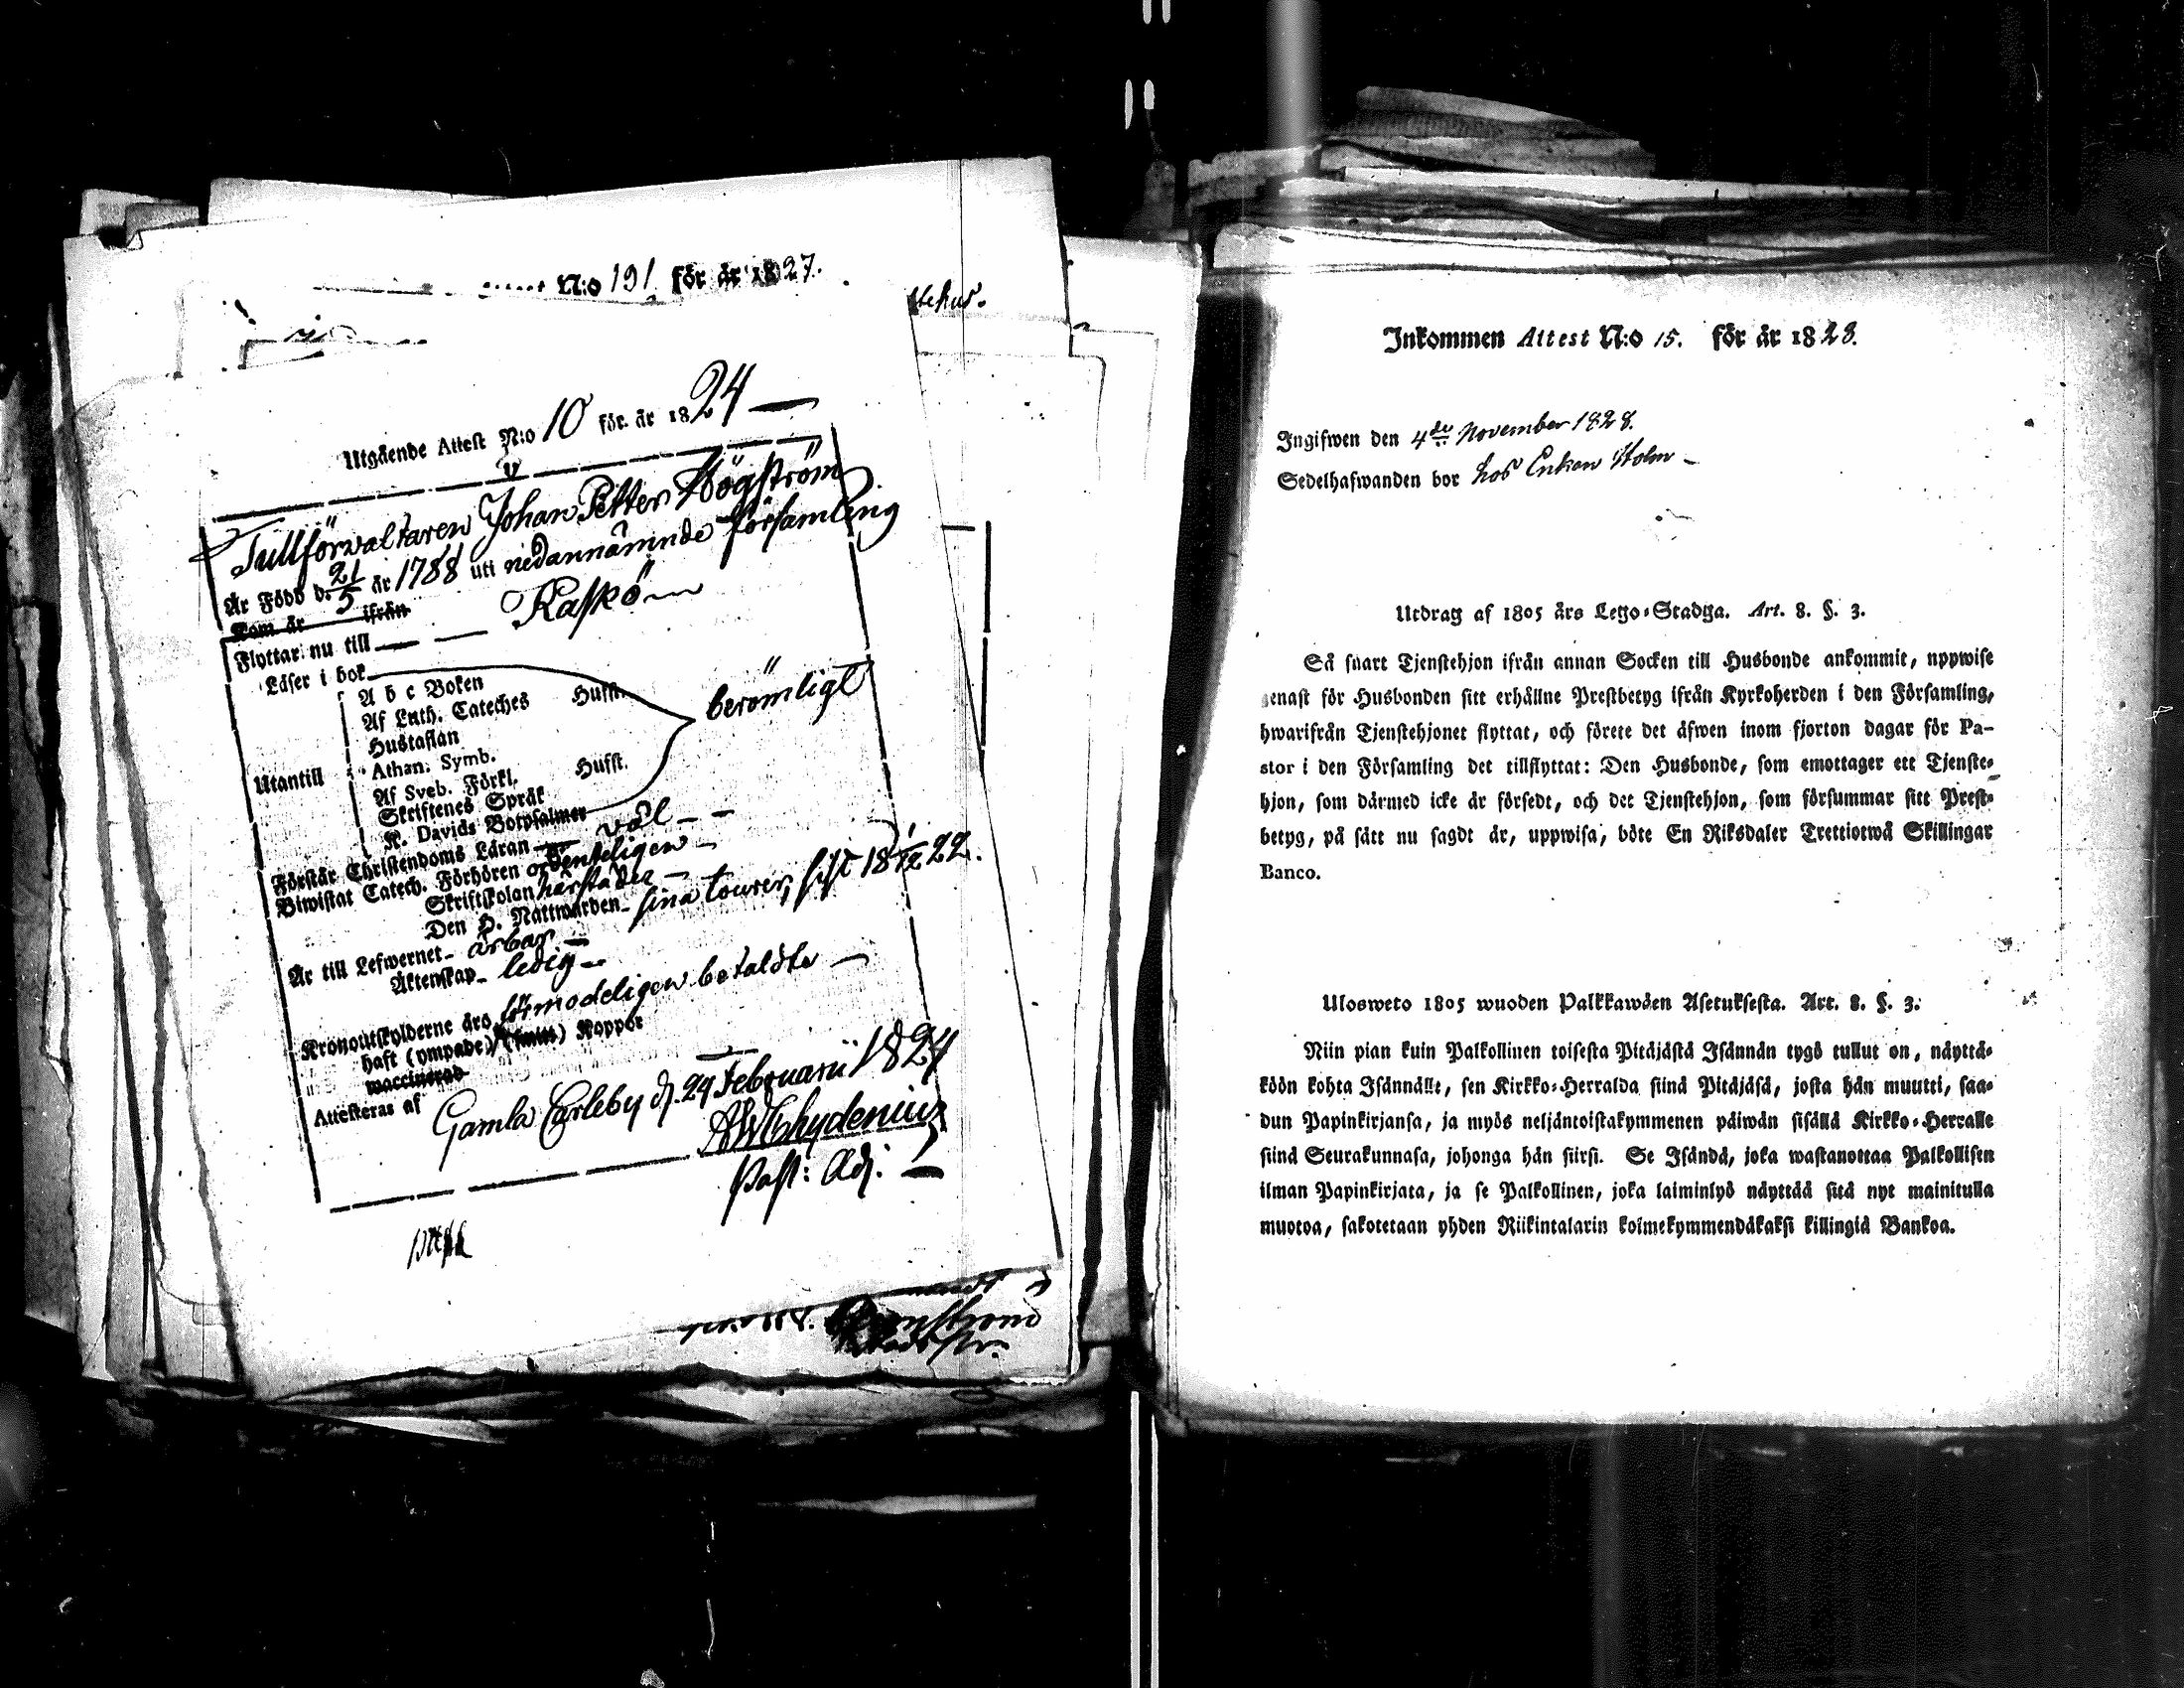 N:o 191 för år 1827.
Utgående Attest N:o 10 för år 1824
Tullförvaltaren Johan Petter Högström
Är Född d. 21/5 år 1788 uti nedannämnde församling
Kom år ifrån
Flyttar nu till Kaskö
Läser i bok
A b c Boken
Af Luth. Cateches Hufst. berömligt
Hustaflan
Utantill Athan. Symb.
Af Sveb. Förkl. Hufst.
Skriftenes Språk
K. Davids Botpsalmer
Förstår Christendoms Läran väl
Biwistat Catech. Förhören ordenteligen
Skriftskolan härstädes
Den H. Nattwarden sina tourer, sist 18 1/12 22.
Är till Lefwernet ärbar
Äktenskap ledig
Kronoutskylderne äro förmodeligen betaldte
haft (ympade) (smitt) Koppor
waccinerad
Attesteras af Gamla Carleby d. 24 Februarii 1824
Chydenius
Past: Adj:
Inkommen Attest N:o 15. för år 1828.
Ingifwen den 4de November 1828.
Sedelhafwanden bor hos Enkan Holm
Utdrag af 1805 års Lego-Stadga. Art. 8. §. 3.
Så snart Tjenstehjon ifrån annan Socken till Husbonde ankommit, uppwise
genast för Husbonden sitt erhållne Prestbetyg ifrån Kyrkoherden i den Församling,
hwarifrån Tjenstehjonet flyttat, och förete det äfwen inom fjorton dagar för Pa-
stor i den Församling det tillflyttat: Den Husbonde, som emottager ett Tjenste-
hjon, som därmed icke är försedt, och det Tjenstehjon, som försummar sitt Prest-
betyg, på sätt nu sagdt är, uppwisa, böte En Riksdaler Trettiotwå Skillingar
Banco.
Ulosweto 1805 wuoden Palkkawäen Asetuksesta. Art. 8. §. 3.
Niin pian kuin Palkollinen toisesta Pitäjästä Isännän tygö tullut on, näyttä-
köön kohta Isännällt, sen Kirkko-Herralda siinä Pitäjäsä, josta hän muutti, saa-
dun Papinkirjansa, ja myös neljäntoistakymmenen päiwän sisällä Kirkko-Herralle
siinä Seurakunnasa, johonga hän siirsi. Se Isändä, joka wastanottaa Palkollisen
ilman Papinkirjata, ja se Palkollinen, joka laiminlyö näyttää sitä nyt mainitulla
muotoa, sakotetaan yhden Riikintalarin kolmekymmendäkaksi killingiä Bankoa.